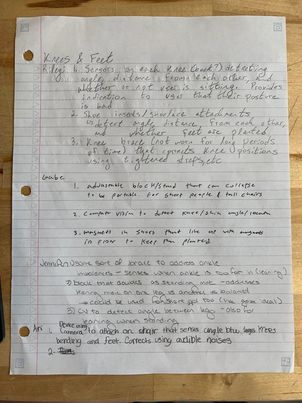 Knees & Feet
1. Sensors by each knee (back?) detecting
angle, distance from each other, and
whether or not user is sitting. Provides
indication to user that their posture
is bad
2. Shoe insoles/surface attachments
detect angle, distance from each other,
and whether feet are planted
3. Knee brace (not worn for long periods
of time) that corrects knee positions
using tightened straps, etc
Gabe:
1. adjustable block/stand that can collapse
to be portable for short people & tall chairs
2. Computer vision to detect knee/shin angle/location
3. magnets in shoes that line up with magnets
in floor to keep them planted
some sort of to address ankle
- senses when ankle is too far in (leaning)
that doubles as standing mat - addresses
leaning more on one leg
could be used for short ppl too
3) CV to detect angle between leg - also for
leaning when standing
1. Device using camera to attach on that senses angle knees
bending and feet. Corrects using audible noises
2.